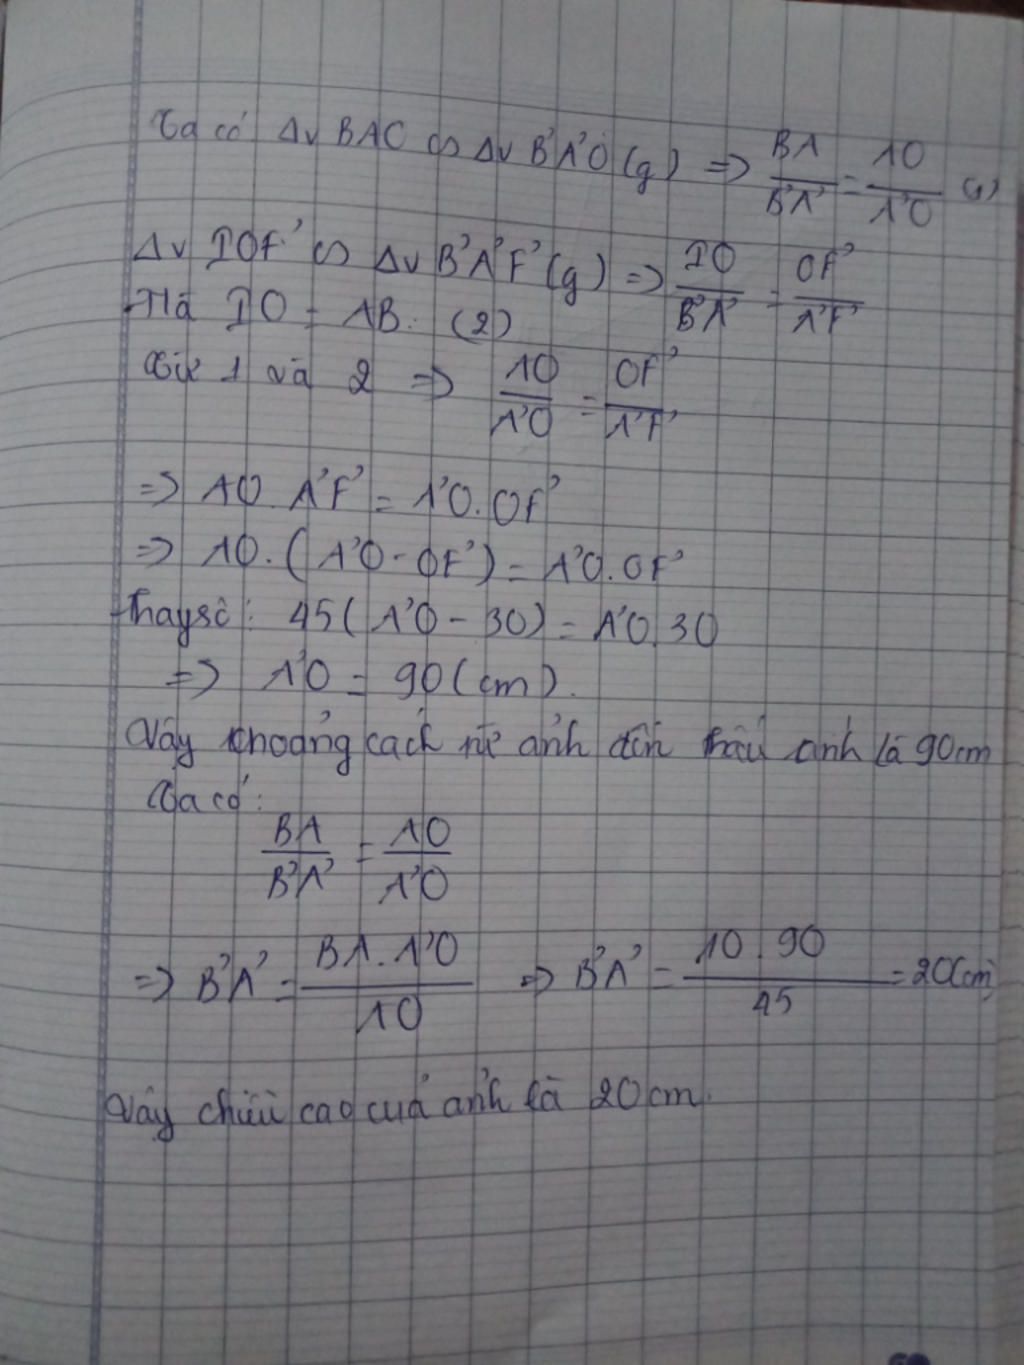 Ta có Δv BAO ∽ Δv B'A'O (g) => BA/B'A' = AO/A'O (1)
Δv IOF' ∽ Δv B'A'F' (g) => IO/B'A' = OF'/A'F'
Mà IO = AB. (2)
Từ 1 và 2 => AO/A'O = OF'/A'F'
=> AO.A'F' = A'O.OF'
=> AO.(A'O - OF') = A'O.OF'
Thay số: 45(A'O - 30) = A'O.30
=> A'O = 90 (cm).
Vậy khoảng cách từ ảnh đến thấu ảnh là 90cm
Ta có:
BA/B'A' = AO/A'O
=> B'A' = BA.A'O/AO => B'A' = 10.90/45 = 20(cm)
Vậy chiều cao của ảnh là 20cm.